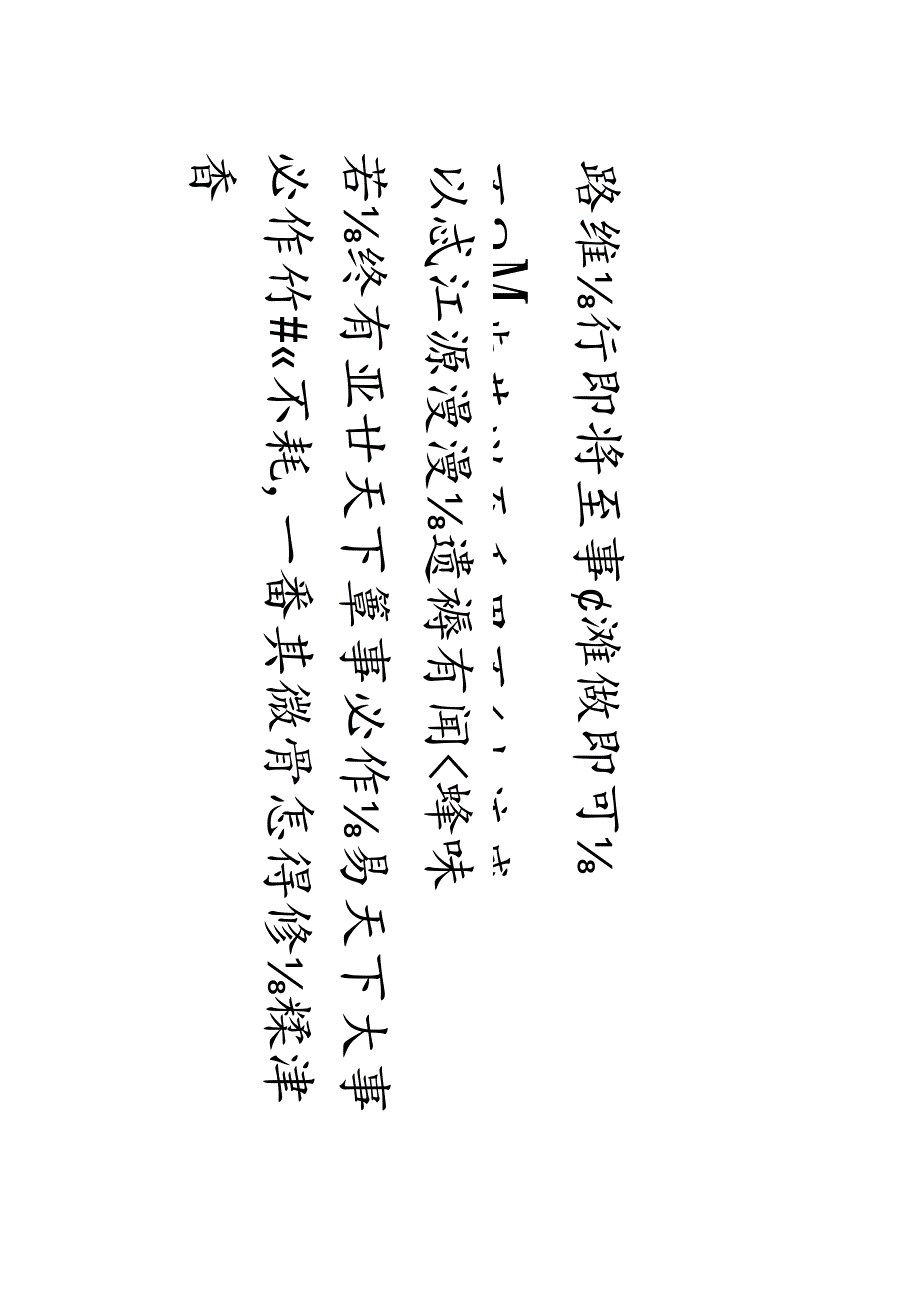 路维⅛行即将至事¢滩做即可⅛
M
以忒江源漫漫⅛遗褥有闻<蜂味
若⅛终有亚廿天下簟事必作⅛易天下大事
必作竹#«不耗，一番其微骨怎得修⅛糅津
香